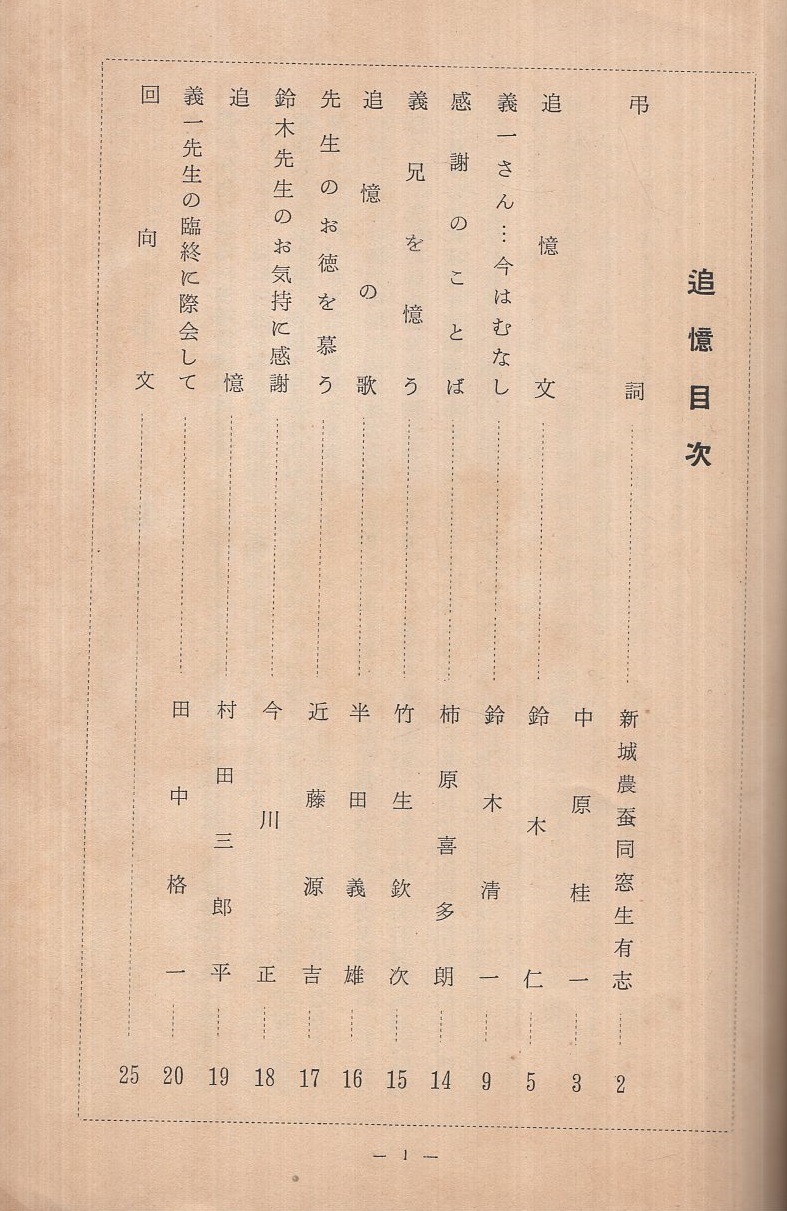 追憶目次
弔詞……新城農蚕同窓生有志……2
中原桂一……3
追憶文……鈴木仁……5
義一さん…今はむなし……鈴木清一……9
感謝のことば……柿原喜多朗……14
義兄を憶う……竹生欽次……15
追憶の歌……半田義雄……16
先生のお徳を慕う……近藤源吉……17
鈴木先生のお気持に感謝……今川正……18
追憶……村田三郎平……19
義一先生の臨終に際会して……田中格一……20
回向文……25
— 1 —